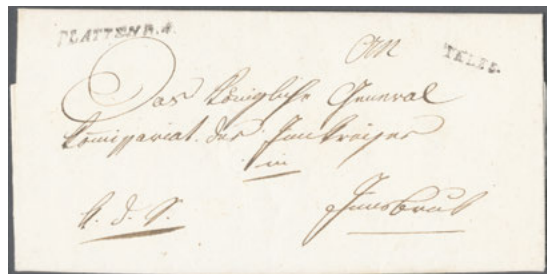 PLATTEND.4.
An
TELFS.
Das Königliche General
Komissariat des Innkreises
in
k. d. S.
Innsbruck